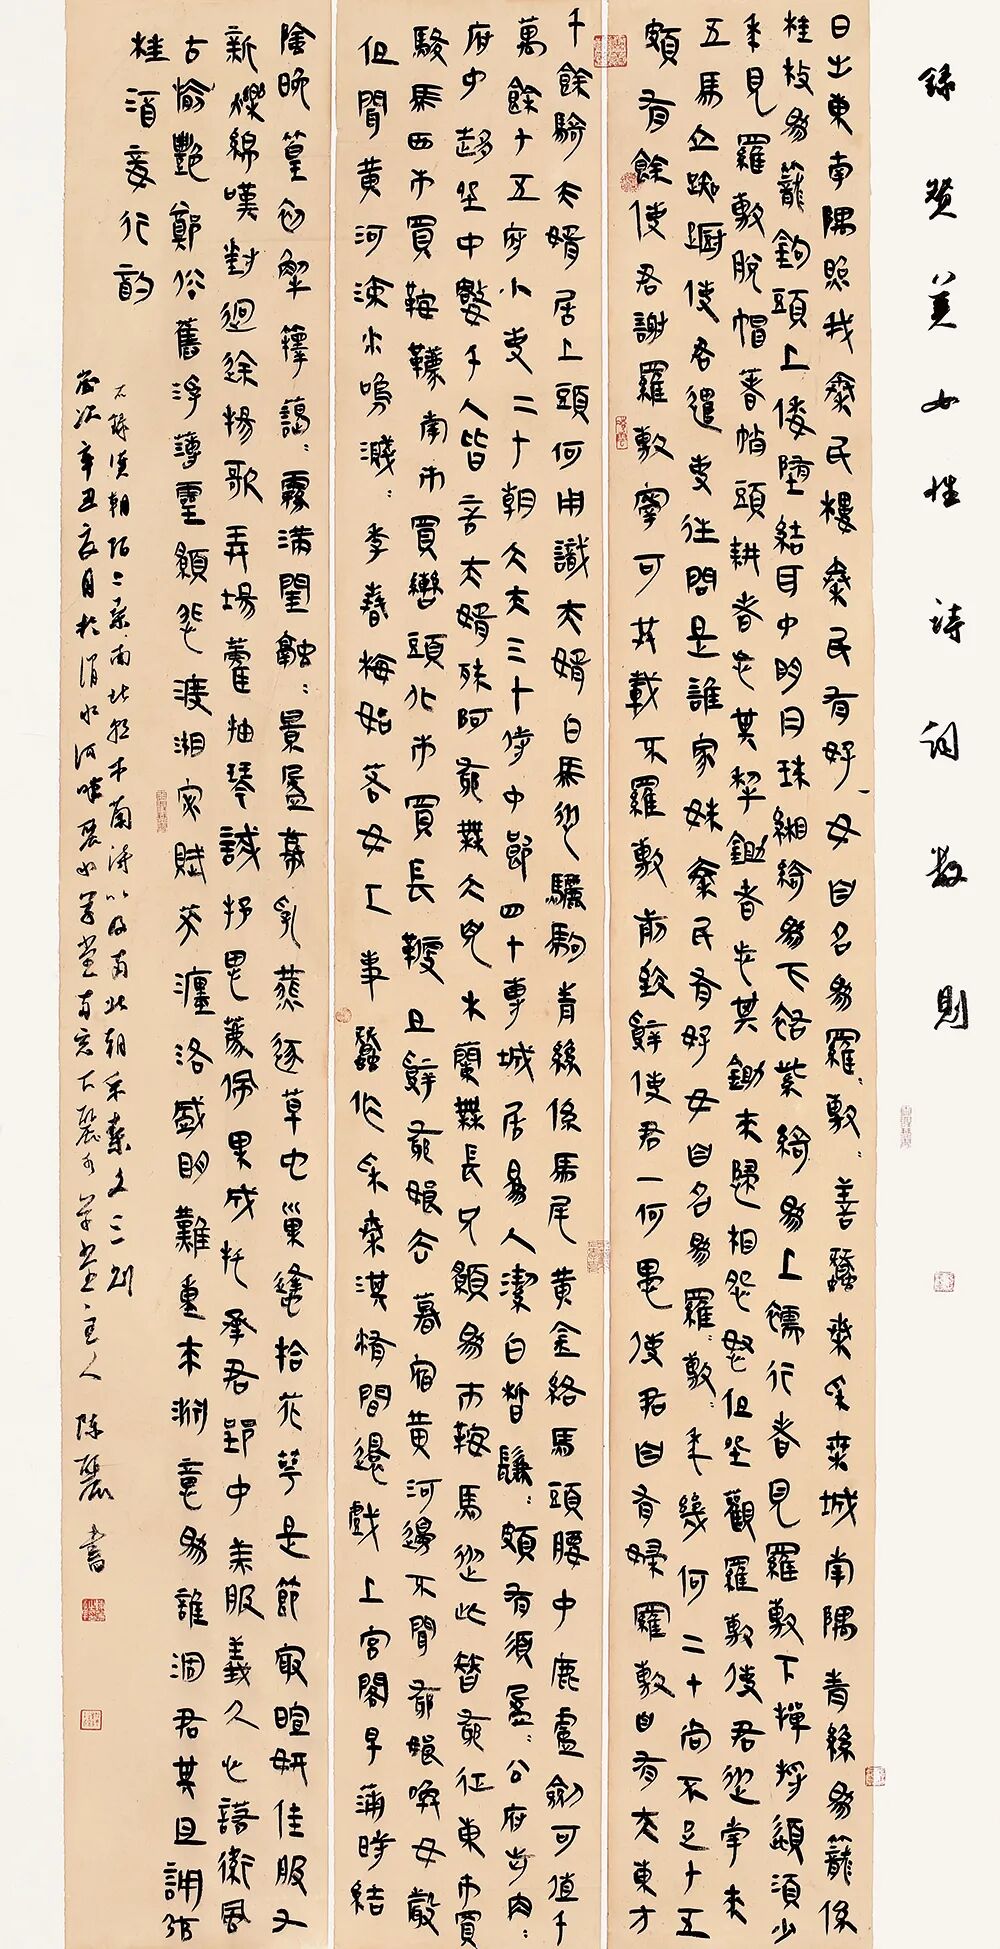 錄贊美女性詩詞數則
日出東南隅照我秦氏樓秦氏有好女自名為羅〻敷〻善蠶桑采桑城南隅青絲為籠係
桂枝為籠鉤頭上倭墮結耳中明月珠緗綺為下裙紫綺為上襦行者見羅敷下擔捋髭須少
年見羅敷脫帽著帩頭耕者忘其犁鋤者忘其鋤來歸相怨怒但坐觀羅敷使君從南來
五馬立踟躕使君遣吏往問是誰家姝秦氏有好女自名為羅〻敷〻年幾何二十尚不足十五
頗有餘使君謝羅敷寧可共載不羅敷前致辭使君一何愚使君自有婦羅敷自有夫東方
千餘騎夫婿居上頭何用識夫婿白馬從驪駒青絲係馬尾黃金絡馬頭腰中鹿盧劍可值千
萬餘十五府小吏二十朝大夫三十侍中郎四十專城居為人潔白皙鬑〻頗有須盈〻公府步冉〻
府中趨坐中數千人皆言夫婿殊阿爺無大兒木蘭無長兄願為市鞍馬從此替爺征東市買
駿馬西市買鞍韉南市買轡頭北市買長鞭旦辭爺娘去暮宿黃河邊不聞爺娘喚女聲
但聞黃河流水鳴濺〻季春梅始落女工事蠶作采桑淇洧間還戲上宮閣早蒲時結
陰晚篁初解籜藹〻霧滿閨融〻景盈幕乳燕逐草虫巢蜂拾花萼是節最暄妍佳服又
新爍綿嘆對迴途揚歌弄場藿抽琴試抒思薦佩果成托承君郢中美服義久心諾衛風
古愉艷鄭俗舊浮薄靈願悲渡湘宓賦笑瀍洛盛明難重來淵意為誰涸君其且調弦
桂酒妾行酌
右錄漢朝陌上桑南北朝木蘭詩以及南北朝采桑文三則
歲次辛丑夏月於渭水河畔麗水草堂南窗下麗水草堂主人陳麗書